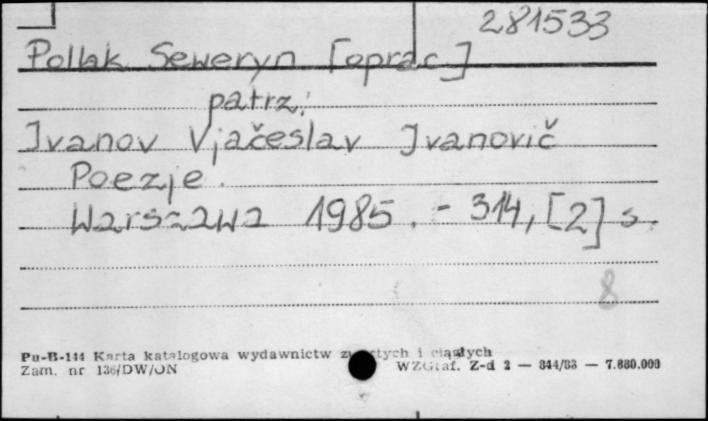 281533
Pollak Seweryn [oprac]
patrz:
Ivanov Vjačeslav Ivanovič
Poezje.
Warszawa 1985. - 314, [2] s.
8
Pu-B-144 Karta katalogowa wydawnictw zwartych i ciągłych
Zam. nr 136/DW/ON WZGraf. Z-d 2 — 844/83 — 7.880.000